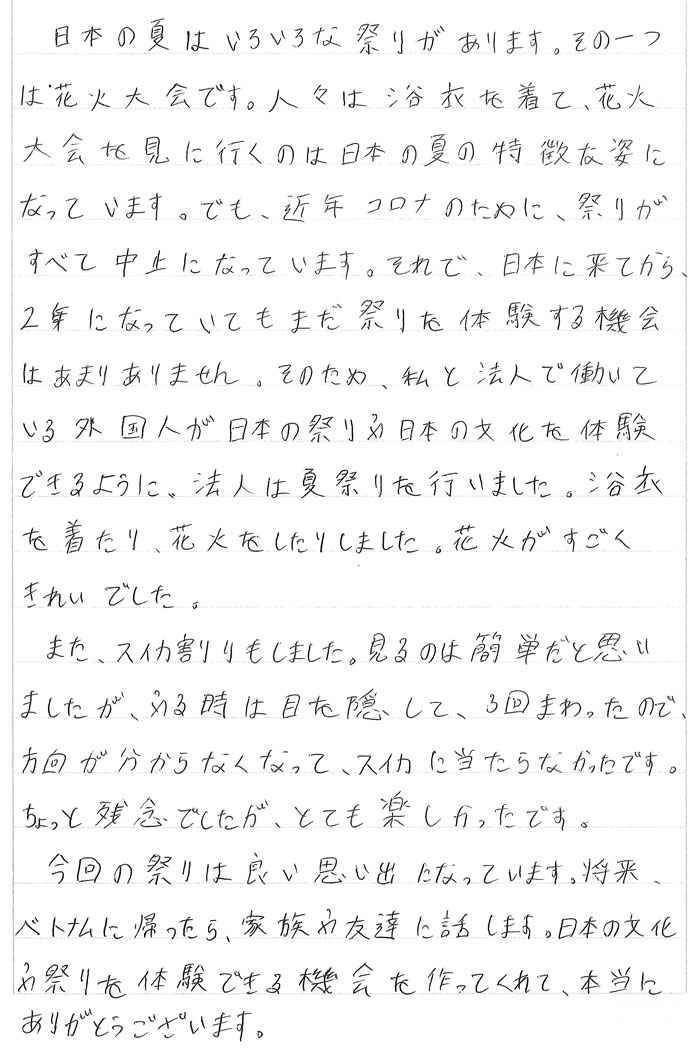 日本の夏はいろいろな祭りがあります。その一つ
は花火大会です。人々は浴衣を着て、花火
大会を見に行くのは日本の夏の特徴な姿に
なっています。でも、近年コロナのために、祭りが
すべて中止になっています。それで、日本に来てから、
2年になっていてもまだ祭りを体験する機会
はあまりありません。そのため、私と法人で働いて
いる外国人が日本の祭りや日本の文化を体験
できるように、法人は夏祭りを行いました。浴衣
を着たり、花火をしたりしました。花火がすごく
きれいでした。
また、スイカ割りりもしました。見るのは簡単だと思い
ましたが、やる時は目を隠して、3回まわったので、
方向が分からなくなって、スイカに当たらなかったです。
ちょっと残念でしたが、とても楽しかったです。
今回の祭りは良い思い出になっています。将来、
ベトナムに帰ったら、家族や友達に話します。日本の文化
や祭りを体験できる機会を作ってくれて、本当に
ありがとうございます。